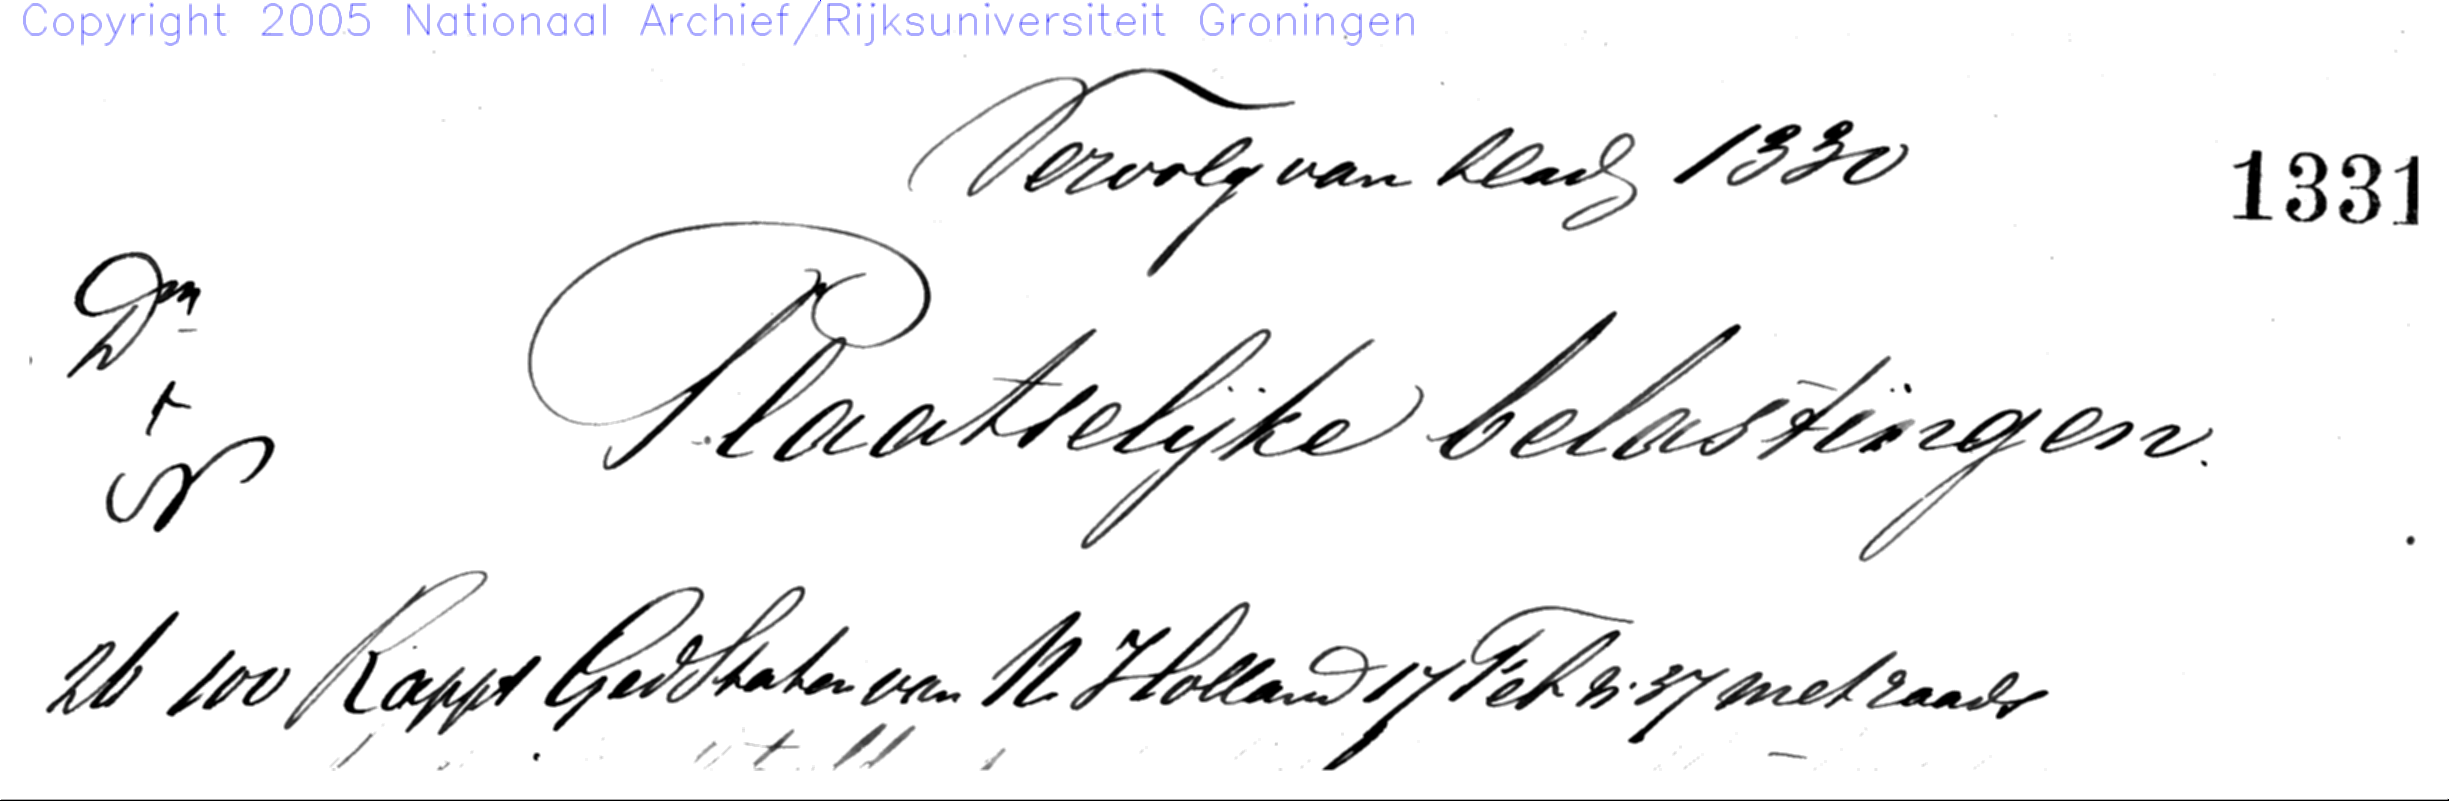 Copyright 2005 Nationaal Archief/Rijksuniversiteit Groningen
Vervolg van bladz 1330
1331
Dm
Plaatselijke belastingen.
26 100 Rappt Ged Staten van N. Holland 17 Feb n. 37 met raads